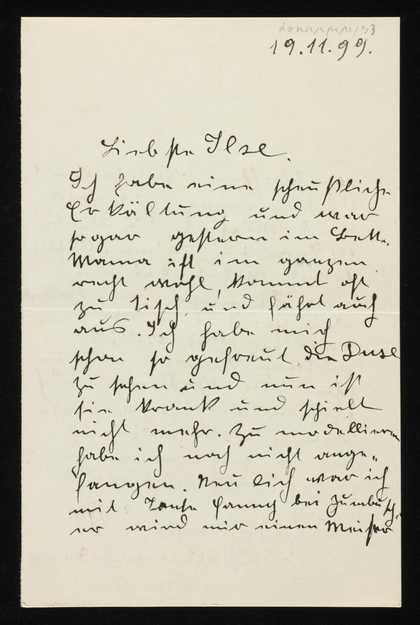 19.11.99.
Liebste Ilse.
Ich habe eine scheußliche
Erkältung und war
sogar gestern im Bett.
Mama ist im ganzen
recht wohl, kommt oft
zu Tisch und fährt auch
aus. Ich habe mich
schon so gefreut die Duse
zu sehen und nun ist
sie krank und spielt
nicht mehr. Zu modellieren
habe ich noch nicht ange-
fangen. Neulich war ich
mit Tante Fanny bei Zumbusch,
er wird mir einen Meister